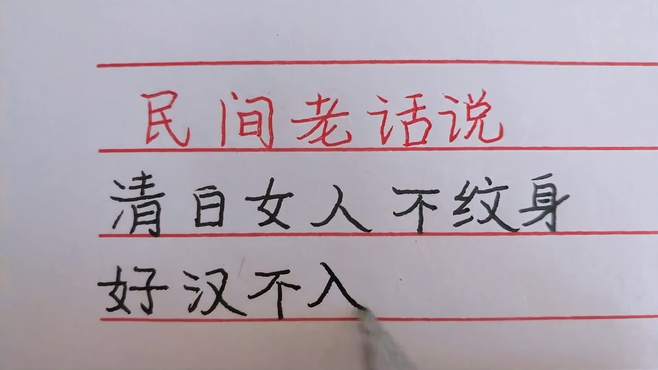 民间老话说
清白女人不纹身
好汉不入